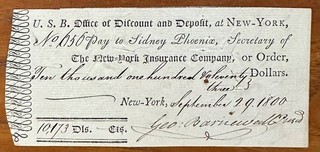 U. S. B. Office of Discount and Deposit, at NEW-YORK,
No. 650 Pay to Sidney Phoenix, Secretary of
The New-York Insurance Company, or Order,
Ten thousand one hundred & seventy
three Dollars.
New-York, September 29. 1800
10173 Dls. - Cts.
Geo. Barnewall